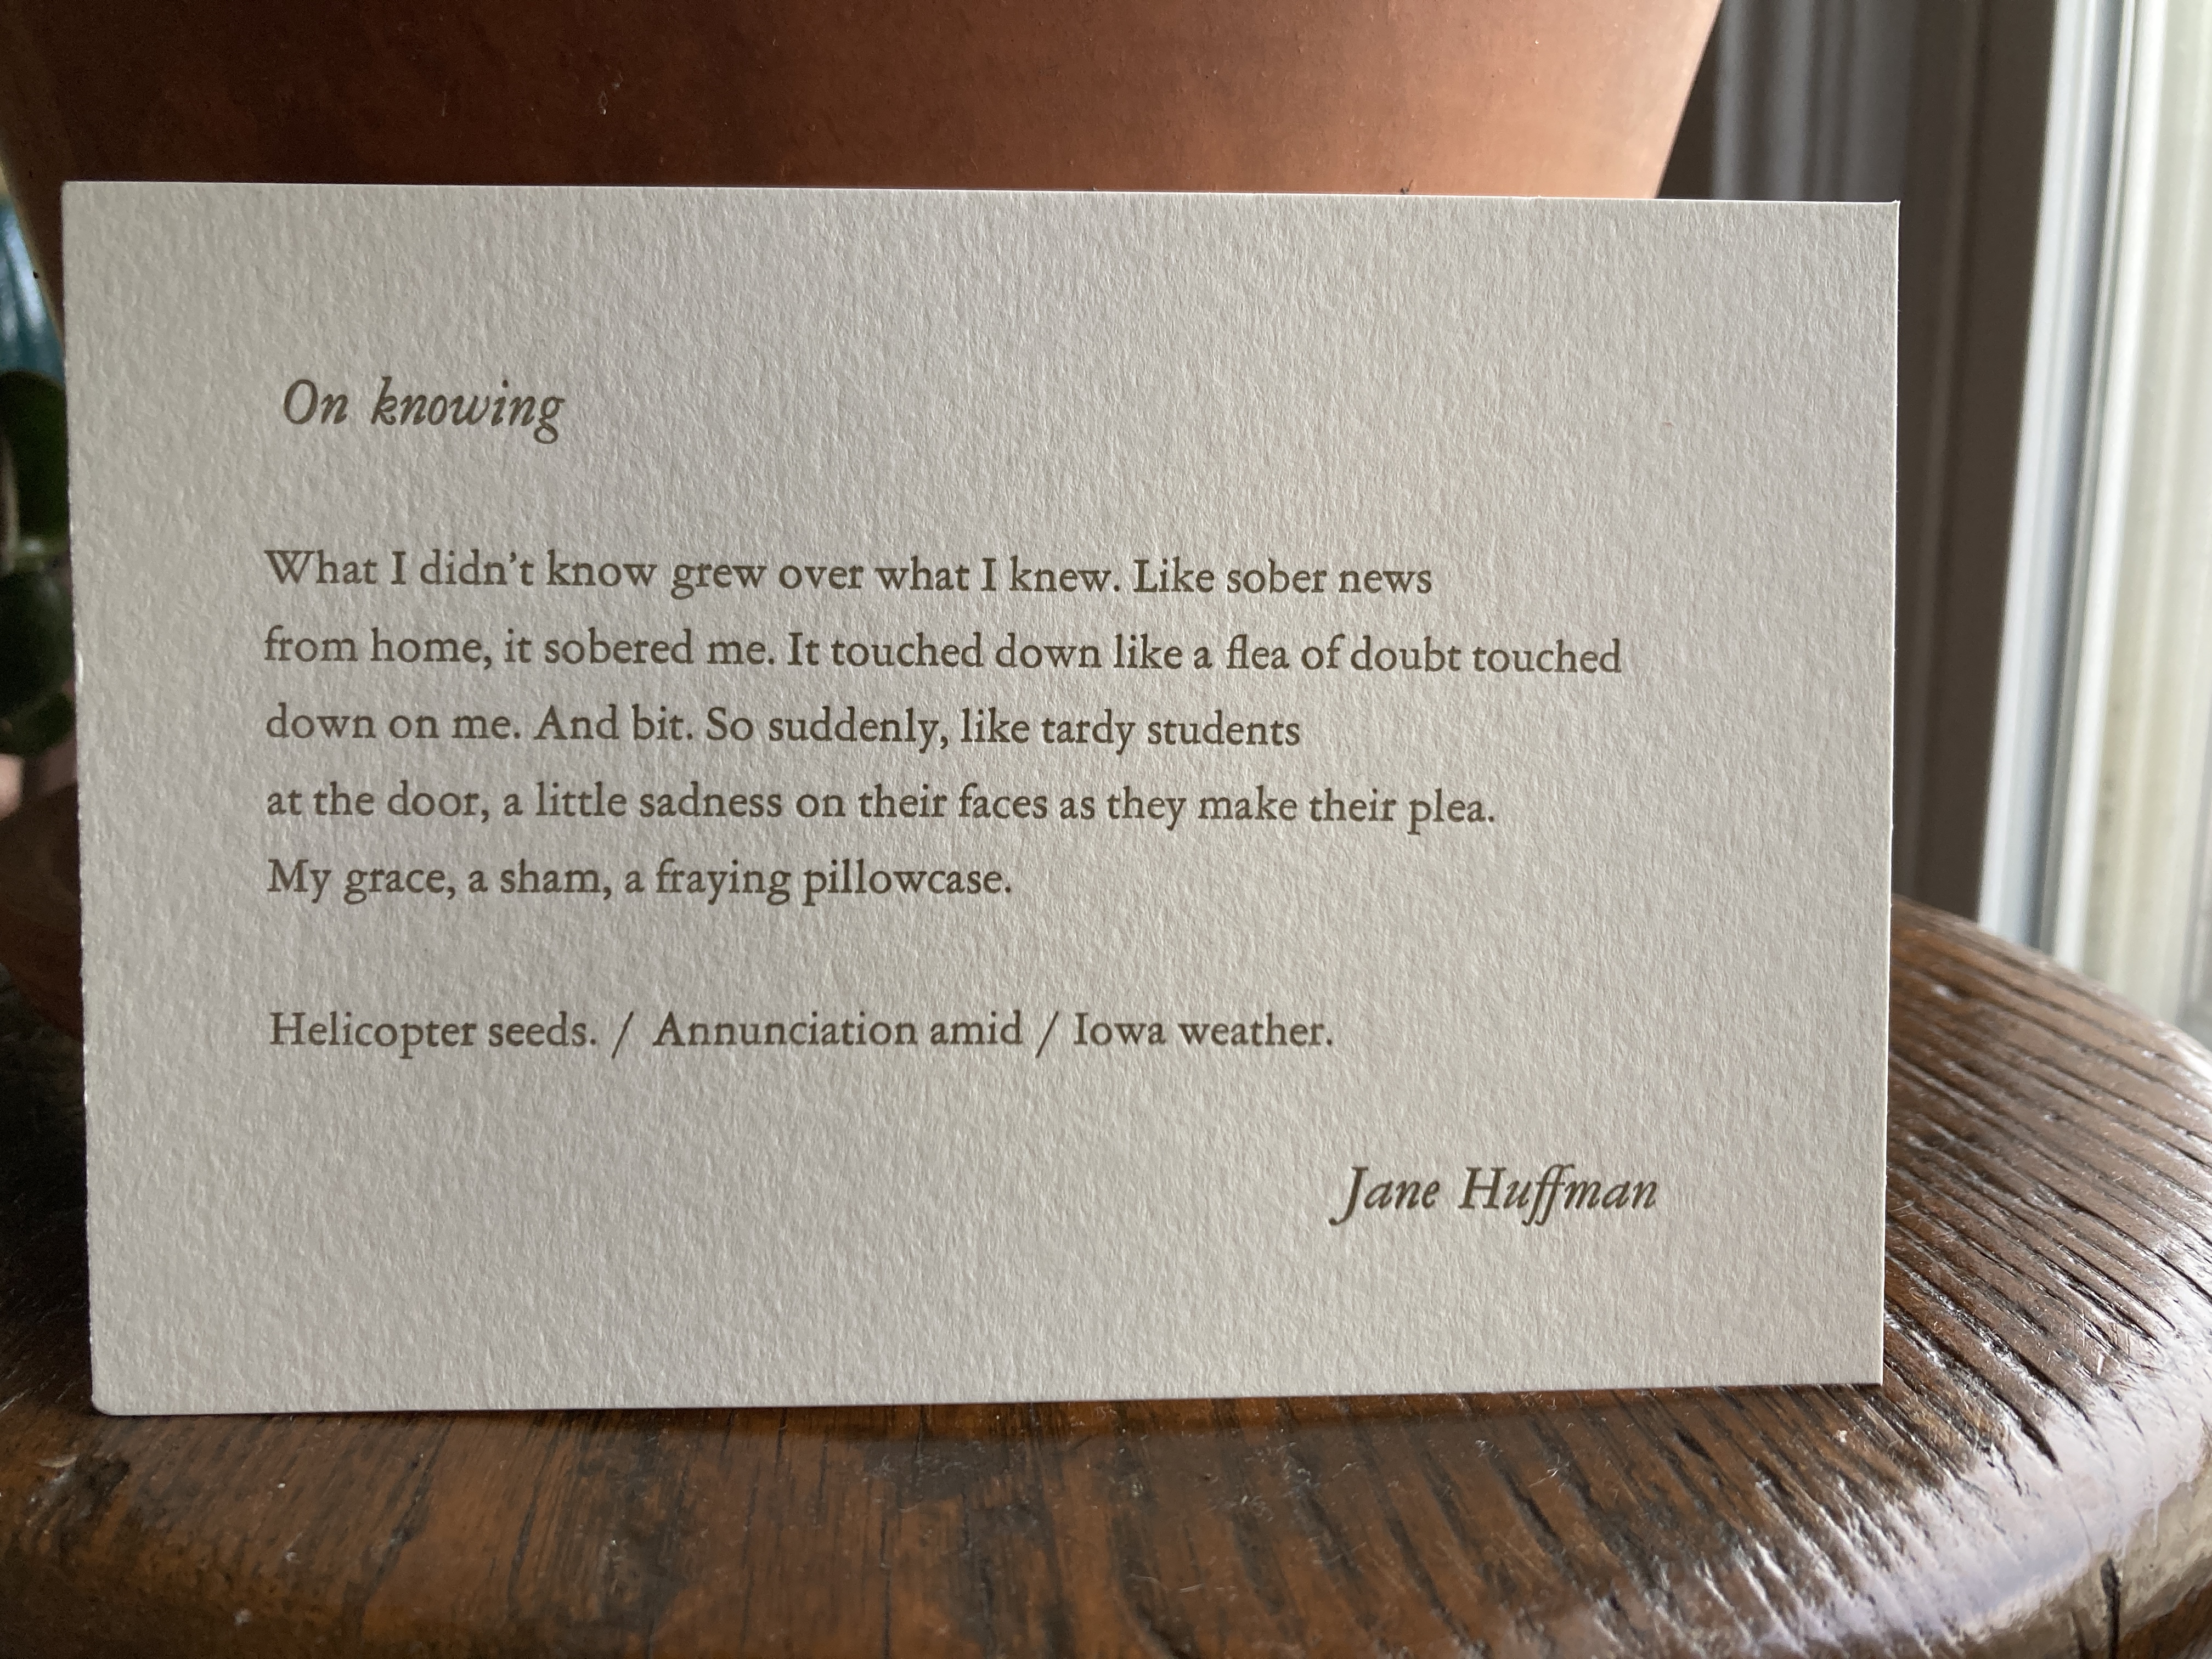 On knowing
What I didn't know grew over what I knew. Like sober news
from home, it sobered me. It touched down like a flea of doubt touched
down on me. And bit. So suddenly, like tardy students
at the door, a little sadness on their faces as they make their plea.
My grace, a sham, a fraying pillowcase.
Helicopter seeds. / Annunciation amid / Iowa weather.
Jane Huffman